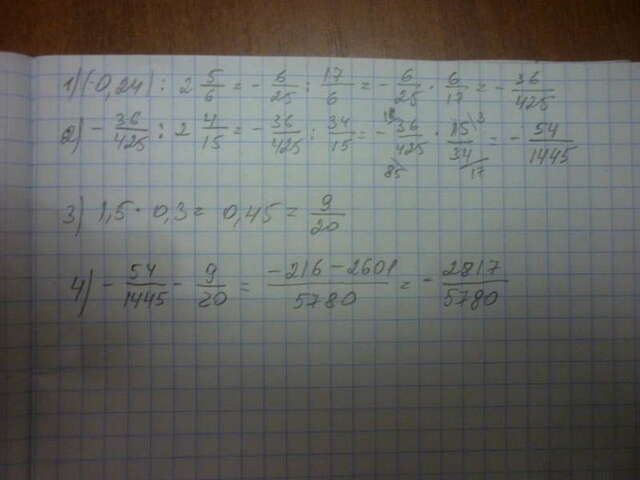 1) (-0,24) : 2 5/6 = - 6/25 : 17/6 = - 6/25 · 6/17 = - 36/425
2) - 36/425 : 2 4/15 = - 36/425 : 34/15 = - 36/425 · 15/34 = - 54/1445
18 3 85 17
3) 1,5 · 0,3 = 0,45 = 9/20
4) - 54/1445 - 9/20 = -216 - 2601/5780 = - 2817/5780